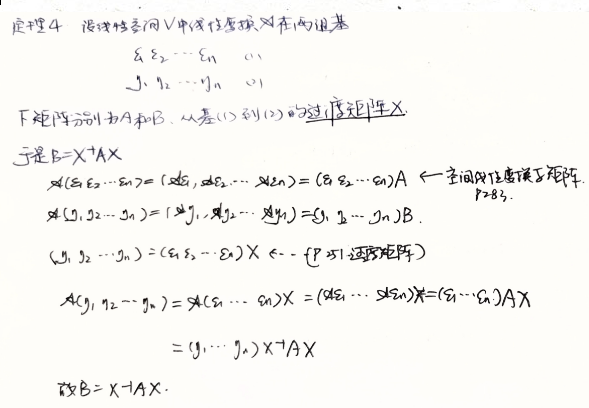 定理4 设线性空间V中线性变换𝒜在两组基
ε₁ ε₂ ⋯ εn (1)
η₁ η₂ ⋯ ηn (2)
下矩阵分别为A和B.从基(1)到(2)的过渡矩阵X.
于是B=X⁻¹AX
𝒜(ε₁ ε₂ ⋯ εn)=(𝒜ε₁,𝒜ε₂ ⋯ 𝒜εn)=(ε₁ ε₂ ⋯ εn)A ← 空间线性变换与矩阵.
P283.
𝒜(η₁ η₂ ⋯ ηn)=(𝒜η₁,𝒜η₂ ⋯ 𝒜ηn)=(η₁ η₂ ⋯ ηn)B.
(η₁ η₂ ⋯ ηn)=(ε₁ ε₂ ⋯ εn)X ←-- (P251过渡矩阵)
𝒜(η₁ η₂ ⋯ ηn)=𝒜(ε₁ ⋯ εn)X=(𝒜ε₁ ⋯ 𝒜εn)X=(ε₁ ⋯ εn)AX
=(η₁ ⋯ ηn)X⁻¹AX
故B=X⁻¹AX.